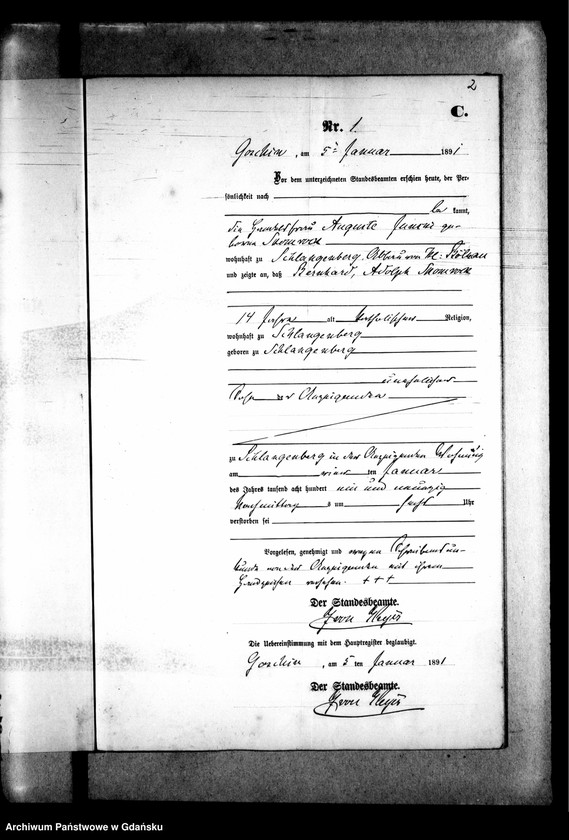 2
C.
Nr. 1.
Goschin, am 5ten Januar 1891
Vor dem unterzeichneten Standesbeamten erschien heute, der Per-
sönlichkeit nach
be kannt,
die Auguste ge-
borene
wohnhaft zu Schlangenberg, Abbau von Kl:
und zeigte an, daß Bernhard, Adolph
14 Jahre alt katholischer Religion,
wohnhaft zu Schlangenberg
geboren zu Schlangenberg
unehelicher
Sohn der Anzeigenden
zu Schlangenberg in der Anzeigenden Wohnung
am ten Januar
des Jahres tausend acht hundert ein und neunzig
Nachmittag s um sechs Uhr
verstorben sei
Vorgelesen, genehmigt und wegen Schreibensun-
kunde von der Anzeigenden mit ihrem
Handzeichen versehen. +++
Der Standesbeamte.
Die Uebereinstimmung mit dem Hauptregister beglaubigt.
Goschin, am 5 ten Januar 1891
Der Standesbeamte.
Archiwum Państwowe w Gdańsku